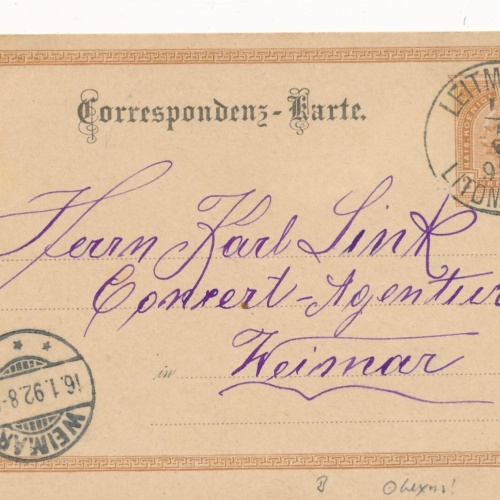 Correspondenz-Karte.
LEITM
LITOM
Herrn Karl Link
Concert-Agentur
in Weimar
16.1.92.8-
WEIMAR
B